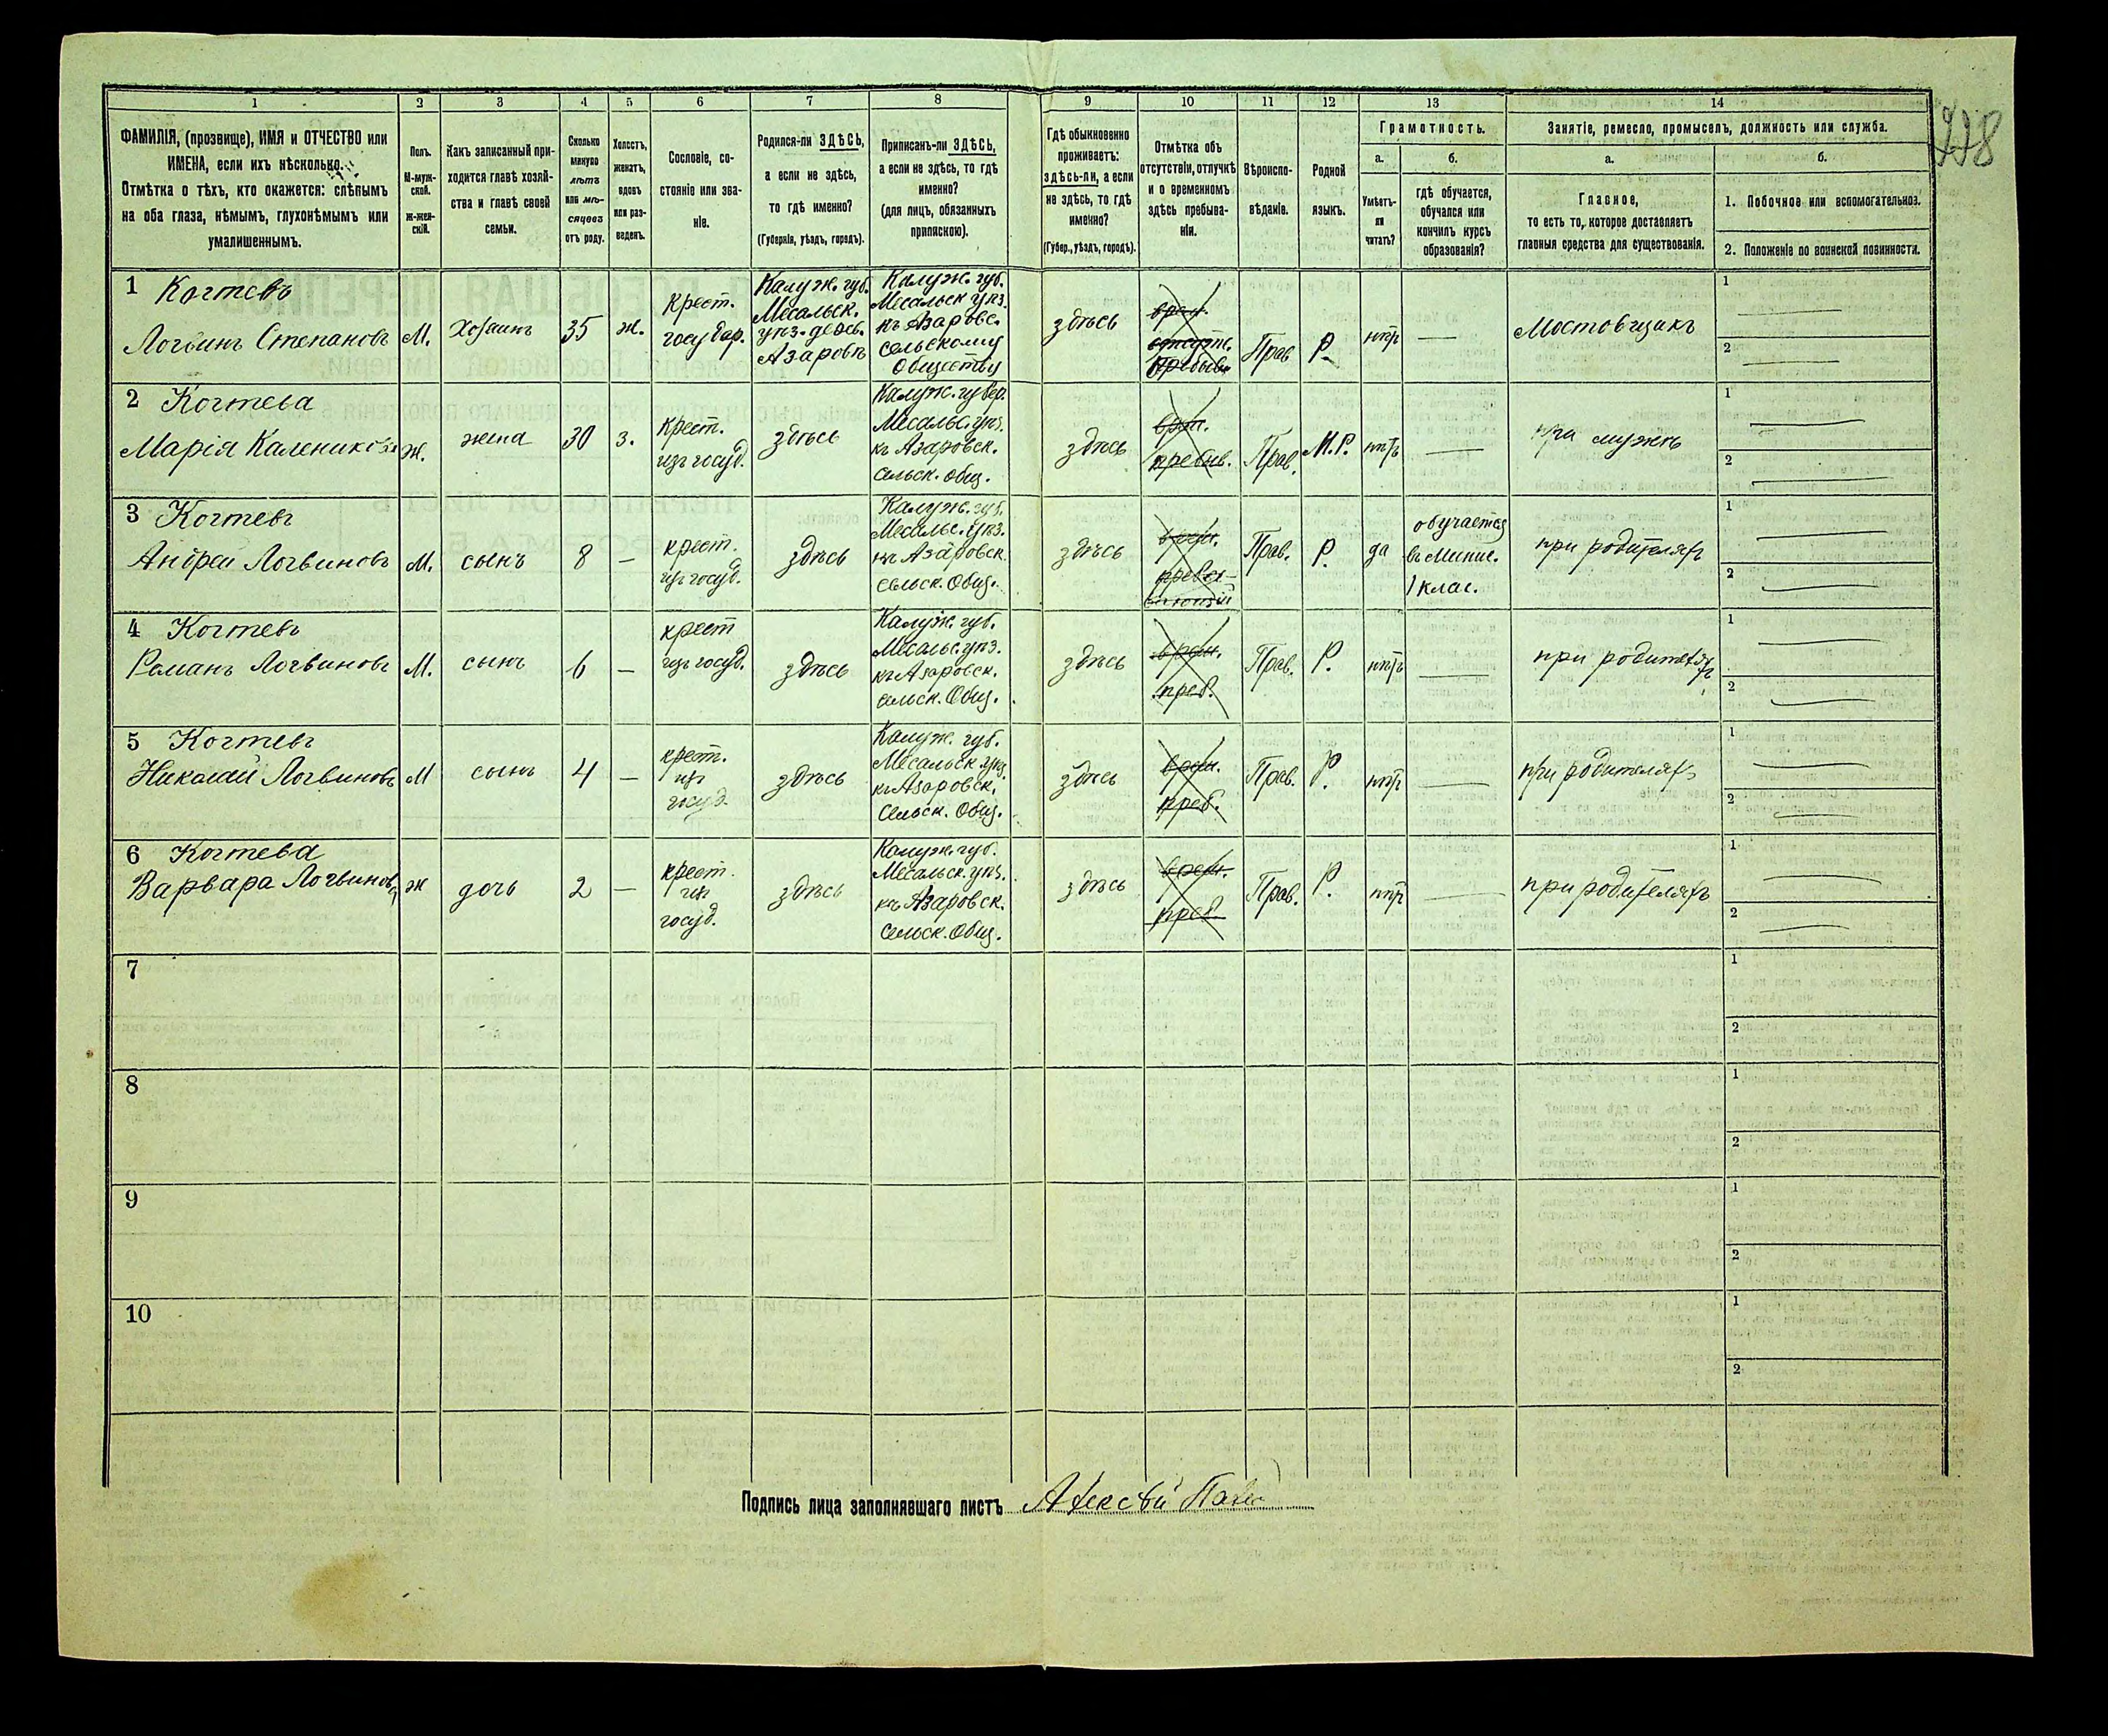 1 2 3 4 5 6 7 8 9 10 11 12 13 14
ФАМИЛІЯ, (прозвище), ИМЯ и ОТЧЕСТВО или
ИМЕНА, если ихъ нѣсколько.
Отмѣтка о тѣхъ, кто окажется: слѣпымъ
на оба глаза, нѣмымъ, глухонѣмымъ или
умалишеннымъ.
Полъ.
М-муж-
ской.
Ж-жен-
скій.
Какъ записанный при-
ходится главѣ хозяй-
ства и главѣ своей
семьи.
Сколько
минуло
лѣтъ
или мѣ-
сяцевъ
отъ роду.
Холостъ,
женатъ,
вдовъ
или раз-
веденъ.
Сословіе, со-
стояніе или зва-
ніе.
Родился-ли ЗДѢСЬ,
а если не здѣсь,
то гдѣ именно?
(Губернія, уѣздъ, городъ).
Приписанъ-ли ЗДѢСЬ,
а если не здѣсь, то гдѣ
именно?
(для лицъ, обязанныхъ
припискою).
Гдѣ обыкновенно
проживаетъ:
здѣсь-ли, а если
не здѣсь, то гдѣ
именно?
(Губер., уѣздъ, городъ).
Отмѣтка объ
отсутствіи, отлучкѣ
и о временномъ
здѣсь пребыва-
ніи.
Вѣроиспо-
вѣданіе.
Родной
языкъ.
Грамотность.
а.
Умѣетъ-
ли
читать?
б.
гдѣ обучается,
обучался или
кончилъ курсъ
образованія?
Занятіе, ремесло, промыселъ, должность или служба.
а.
Главное,
то есть то, которое доставляетъ
главныя средства для существованія.
б.
1. Побочное или вспомогательное.
2. Положеніе по воинской повинности.
1 Когтевъ
Логвинъ Степановъ
М.
Хозяинъ
35
ж.
крест.
государ.
Калуж. губ.
Месальск.
уѣз. дерев.
Азаровѣ
Калуж. губ.
Месальск уѣз.
къ Азаровс.
сельскому
Обществу
здѣсь
врем.
отсутс.
Пребыв.
Прав
Р.
нѣтъ
Мостовщикъ
1
2
2 Когтева
Марія Каленикова
ж.
жена
30
з.
крест.
изъ госуд.
здѣсь
Калуж. губер.
Месальс. уѣз.
къ Азаровск.
сельск. общ.
здѣсь
врем.
пребыв.
Прав.
М.Р.
нѣтъ
при мужѣ
1
2
3 Когтевъ
Андрей Логвиновъ
М.
сынъ
8
крест.
изъ госуд.
здѣсь
Калуж. губ.
Месальс. уѣз.
къ Азаровск.
сельск. Общ.
здѣсь
врем.
Прав.
Р.
да
обучается
въ Минис.
1 клас.
при родителяхъ
1
2
4 Когтевъ
Романъ Логвиновъ
М.
сынъ
6
крест
изъ госуд.
здѣсь
Калуж. губ.
Месальс. уѣз.
къ Азаровск.
сельск. Общ.
здѣсь
врем.
преб.
Прав.
Р.
нѣтъ
при родителяхъ
1
2
5 Когтевъ
Николай Логвиновъ
М
сынъ
4
крест.
изъ
госуд.
здѣсь
Калуж. губ.
Месальск. уѣз.
къ Азаровск.
Сельск. Общ.
здѣсь
врем.
преб.
Прав.
Р.
нѣтъ
при родителяхъ
1
2
6 Когтева
Варвара Логвинова
ж
дочь
2
крест.
изъ
госуд.
здѣсь
Калуж. губ.
Месальск. уѣз.
къ Азаровск.
Сельск. Общ.
здѣсь
врем.
преб.
Прав.
Р.
нѣтъ
при родителяхъ
1
2
7
1
2
8
1
2
9
1
2
10
1
2
Подпись лица заполнявшаго листъ Алексѣй